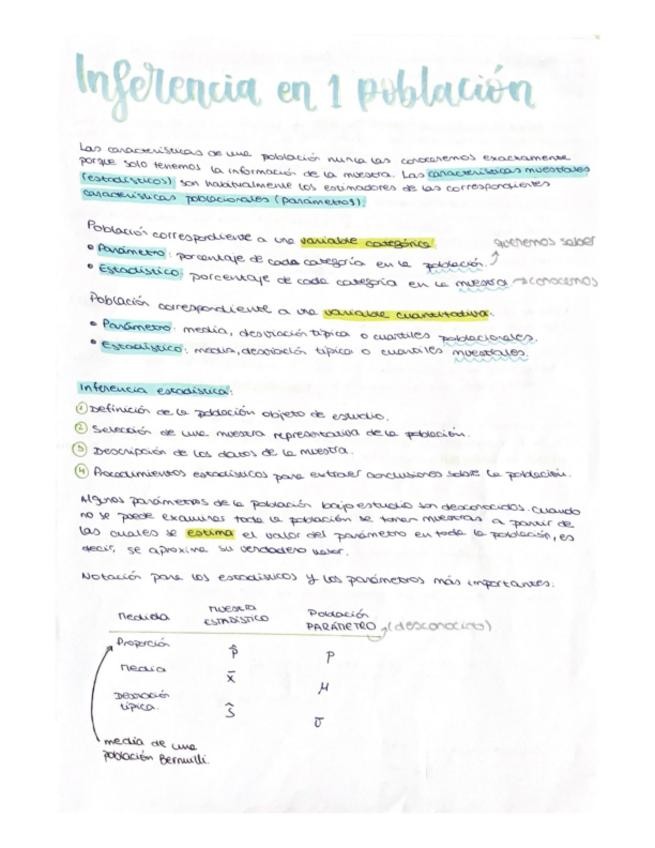 Inferencia en 1 población
Las características de una población nunca las conoceremos exactamente
porque solo tenemos la información de la muestra. Las características muestrales
(estadísticos) son habitualmente los estimadores de las correspondientes
características poblacionales (parámetros).
Población correspondiente a una variable categórica.
queremos saber
• Parámetro: porcentaje de cada categoría en la población.
• Estadístico: porcentaje de cada categoría en la muestra → conocemos
Población correspondiente a una variable cuantitativa:
• Parámetro: media, desviación típica o cuartiles poblacionales.
• Estadístico: media, desviación típica o cuartiles muestrales.
Inferencia estadística:
1 Definición de la población objeto de estudio.
2 Selección de una muestra representativa de la población.
3 Descripción de los datos de la muestra.
4 Procedimientos estadísticos para extraer conclusiones sobre la población.
Algunos parámetros de la población bajo estudio son desconocidos. Cuando
no se puede examinar toda la población se toman muestras a partir de
las cuales se estima el valor del parámetro en toda la población, es
decir, se aproxima su verdadero valor.
Notación para los estadísticos y los parámetros más importantes:
Medida MUESTRA Población
ESTADÍSTICO PARÁMETRO (desconocido)
Proporción p̂ P
Media x̄ μ
Desviación
típica. ŝ σ
media de una
población Bernuilli.